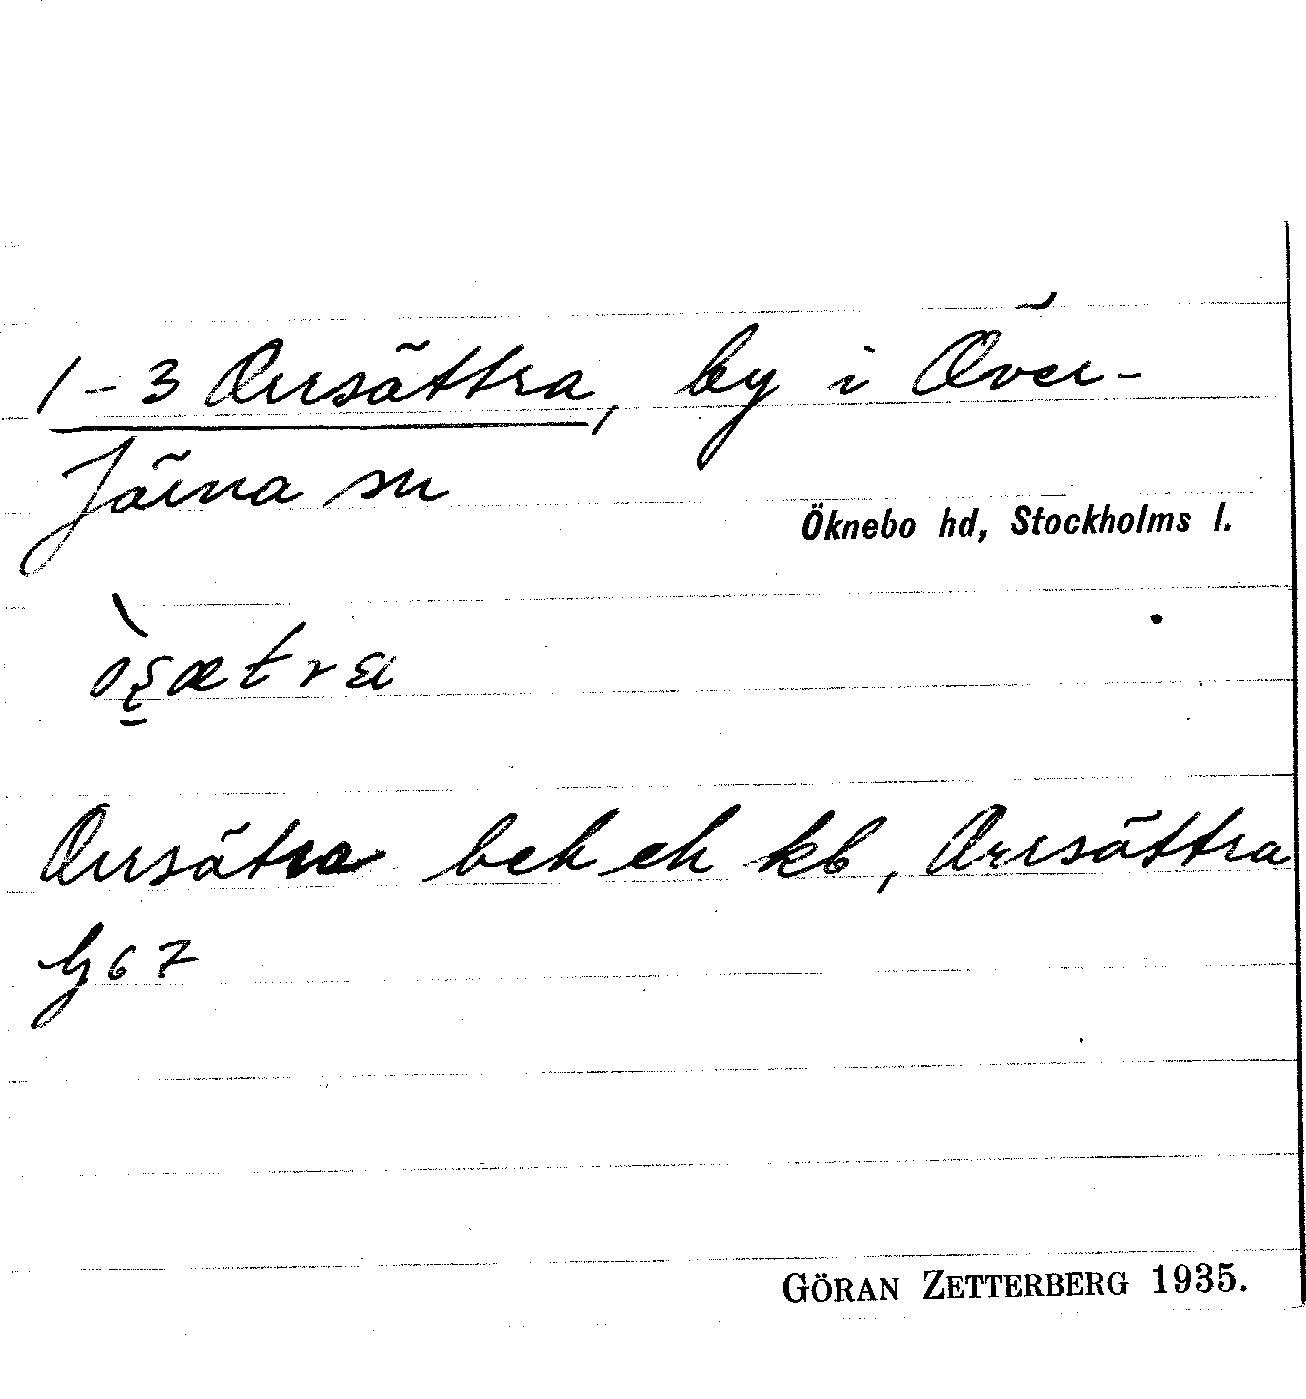 1-3 Orsättra, by i Över-
Järna sn
Öknebo hd, Stockholms l.
òʂætra
Orsätra bek ek kb, Orrsättra
G 67
GÖRAN ZETTERBERG 1935.